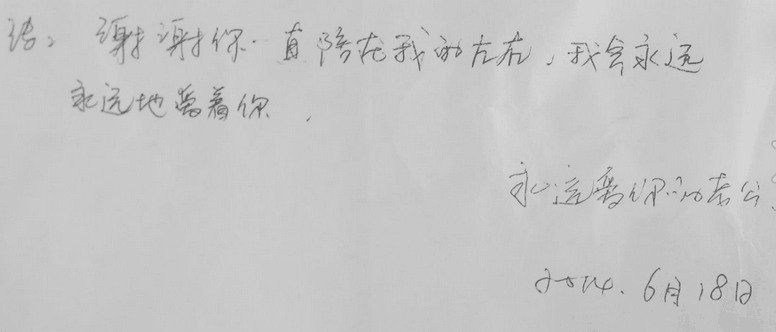 谢谢你一直陪在我的左右，我会永远
永远地爱着你．
永远爱你的老公
2014. 6月18日